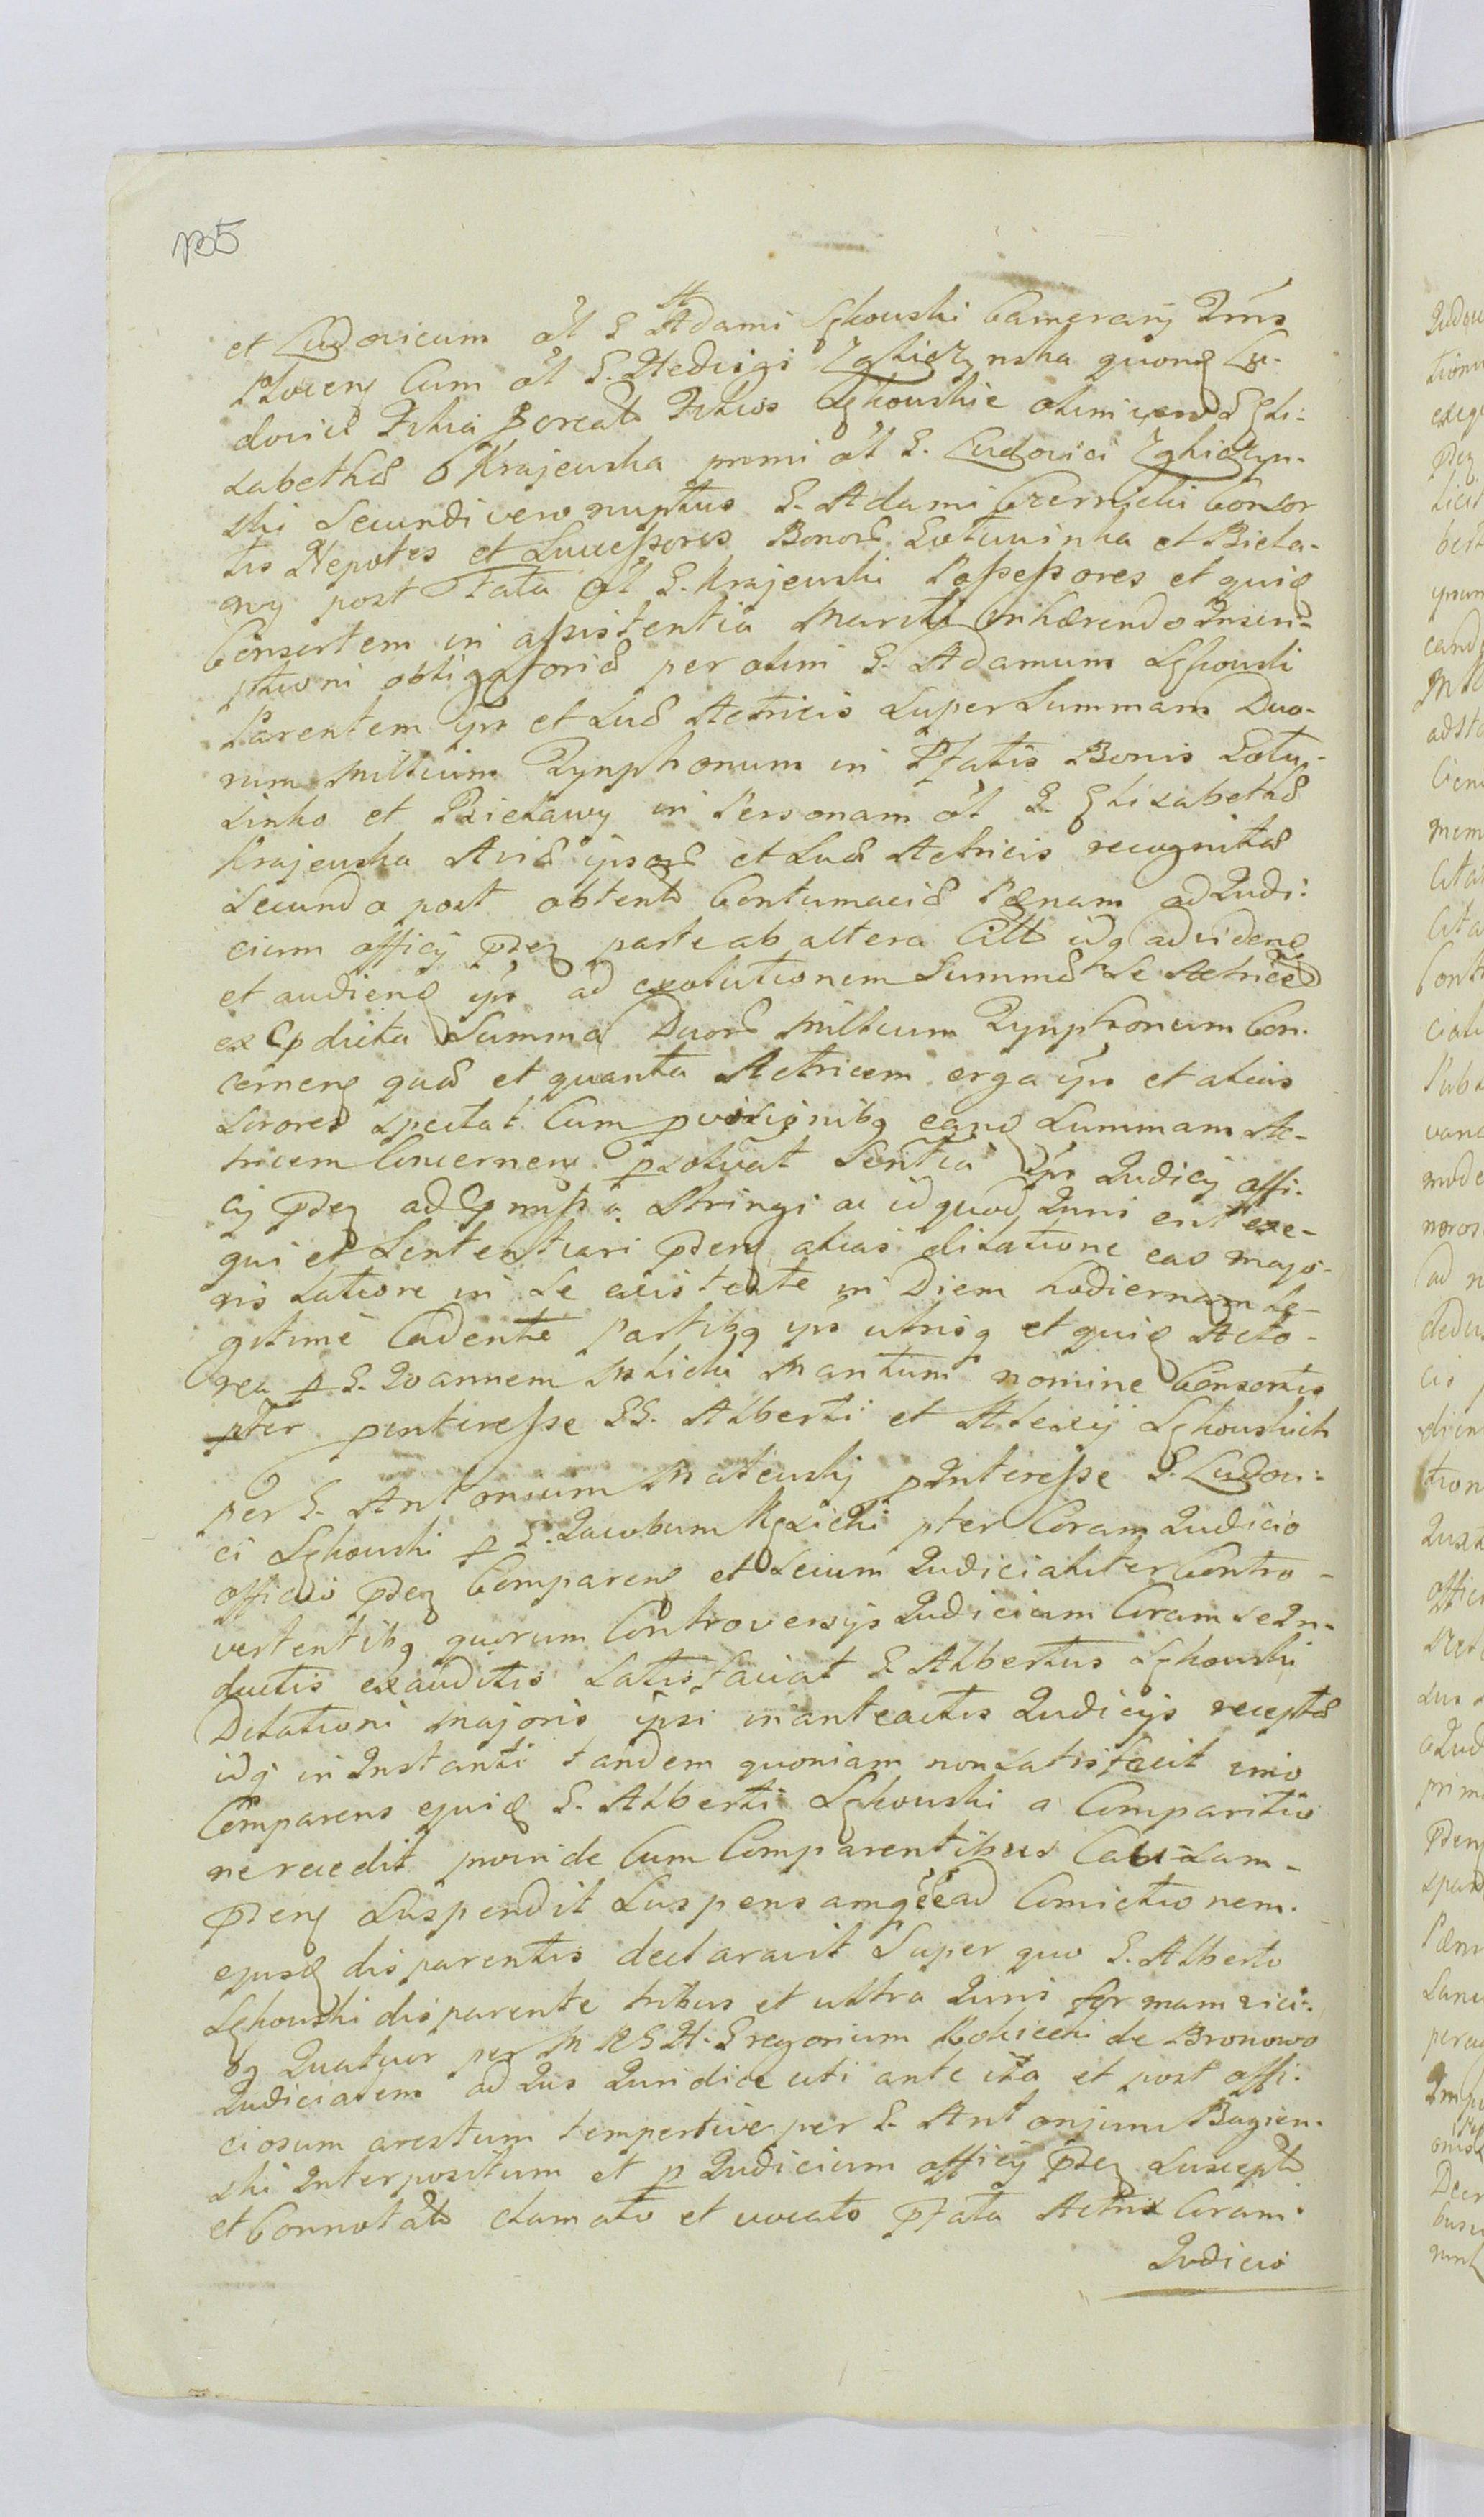 135
et Ludovicum ol G Adami Lękowski Camerarij Trnis
Plocen Cum ol G. Hedvigi Zgliczynska quond Lu-
dovici Filia Procreat Filios Lękowskie olim vero Eli:
sabethæ Krajewska primi ol G. Ludovici Zgliczyn-
ski Secundi vero nuptus G. Adami Czernicki Consor
tis Nepotes et Successores Bonor Goturinka et Biela-
wy post Fata ol G. Krajewski Possessores et quid
Consortem in assistentia Mariti inhærendo Inscri-
ptioni obligatoriæ per olim G. Adamum Lękowski
Parentem ips et suæ Actricis super Summam Duo-
rum Millium Tynphonum in Pfatis Bonis Gotu-
sinko et Bielawy in Personam ol G. Elisabethæ
Krajewska Aviæ ipsor et suæ Actricis recognitæ
Secundo post obtent Contumaciæ Pænam ad Judi:
cium officij pden parte ab altera Citt idq ad videnđ
et audienđ ips ad exolutionem Summæ Se Actricem
ex Cp dicta Summa Duor Millium Tynphonum Con-
cernen quæ et quanta Actricem erga ips et alias
Sorores spectat Cum provisionibg eanđ Summam Ac-
tricem Concernen psolvat Sentia ips Judicij offi-
cij pden ad Cpmissa Stringi ac id quod Juris erit exe-
qui et Sententiari pden alias dilatione eas majo-
ris ratione in se existente in Diem hodiernam le-
gitime Cadente Partibg ips utrisq et quid Acto-
rea p G. Joannem Milicki Maritum nomine Consortis
pter pinteresse GG. Alberti et Alexij Lękowskich
per G. Antonium Mateuskj pInteresse G. Ludovi-
ci Lękowski p G. Jacobum Kęsicki pter Coram Judicio
officio pden Comparen et Secum Judicialiter Contro-
vertentibg quorum Controversijs Judicium Coram se In-
ductis exauditis Satisfaciat G. Albertus Lękowski
Dilationi majoris ipsi in anteactis Judicijs receptæ
idq in Instanti tandem quoniam non satisfecit imo
Comparens ejusđ G. Alberti Lękowski a Comparitio
ne recedit proinde Cum Comparentibus Causam
pden Suspendit Suspensamq ad Comictionem
ejusđ disparentis declaravit Super quo G. Alberto
Lękowski disparente tribus et ultra Juris formam vici:
bg Quatuor per M R G H. Gregorium Kobiecki de Bronowo
Judicialem ad Jus Juridice uti ante ita et post offi-
ciosum arestum tempestive per G. Antonium Bagien-
ski Interpositum et p Judicium officij pden Suscept
et Connotato clamato et vocato Pfata Actrix Coram
Judicio